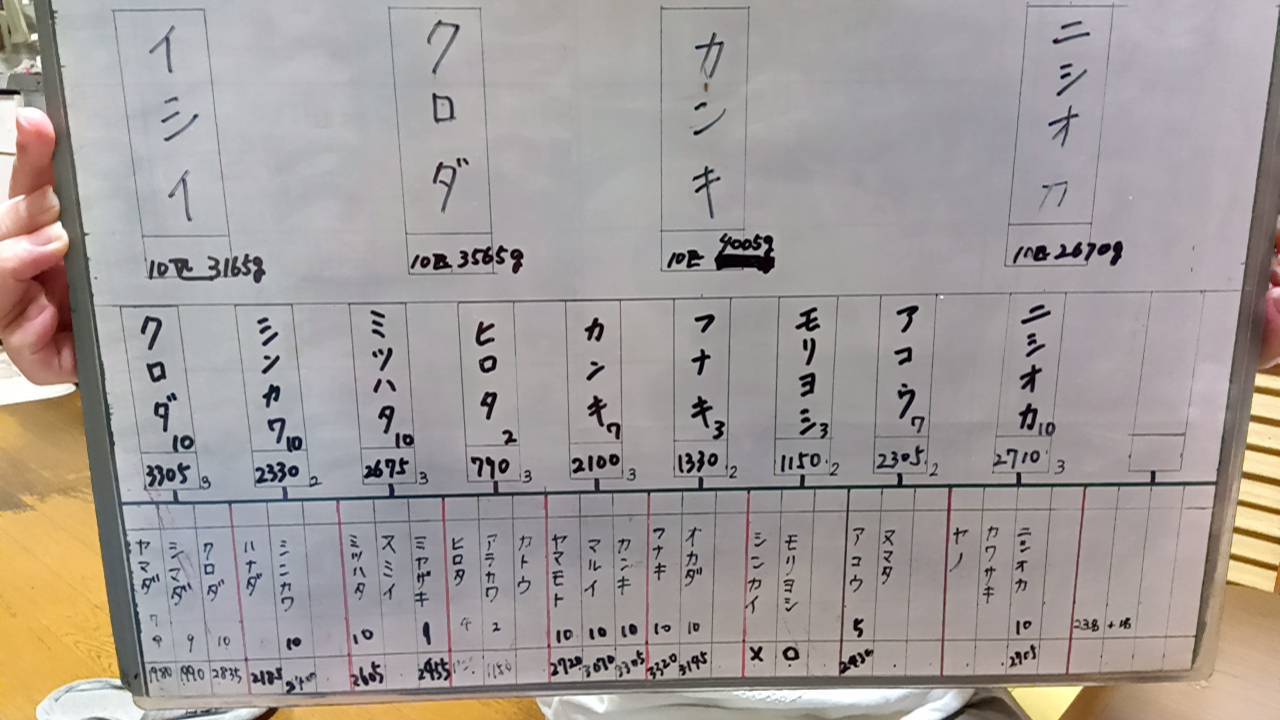 イシイ
10匹 3165g
クロダ
10匹 3565g
カンキ
10匹 4005g
ニシオカ
10匹 2670g
クロダ 10
3305 3
シンカワ 10
2330 2
ミツハタ 10
2675 3
ヒロタ 2
790 3
カンキ 7
2100 3
フナキ 3
1330 2
モリヨシ 3
1150 2
アコウ 7
2305 2
ニシオカ 10
2710 3
ヤマダ
1980
シマダ 9
1990
クロダ 10
2835
ハナダ
2185
シンカワ 10
ミツハタ 10
2605
スミイ
ミヤザキ 9
2455
ヒロタ 4
アラカワ 2
1150
カトウ
ヤマモト 10
2720
マルイ 10
3070
カンキ 10
3305
フナキ 10
3320
オカダ 10
3195
シンカイ
×
モリヨシ
○
アコウ 5
ヌマタ
ヤノ
カワサキ
ニシオカ 10